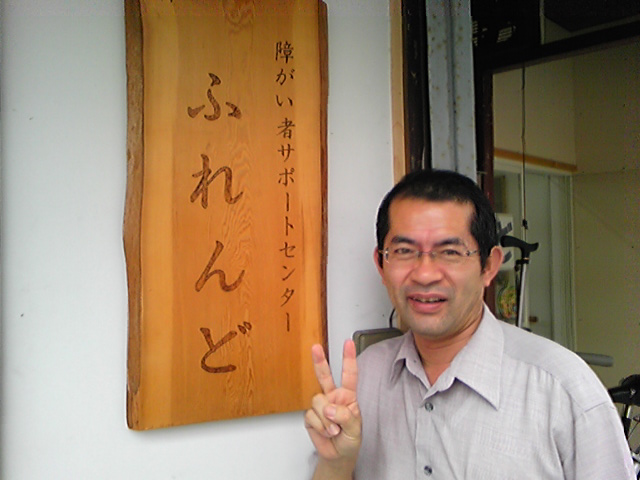 障がい者サポートセンター
ふれんど